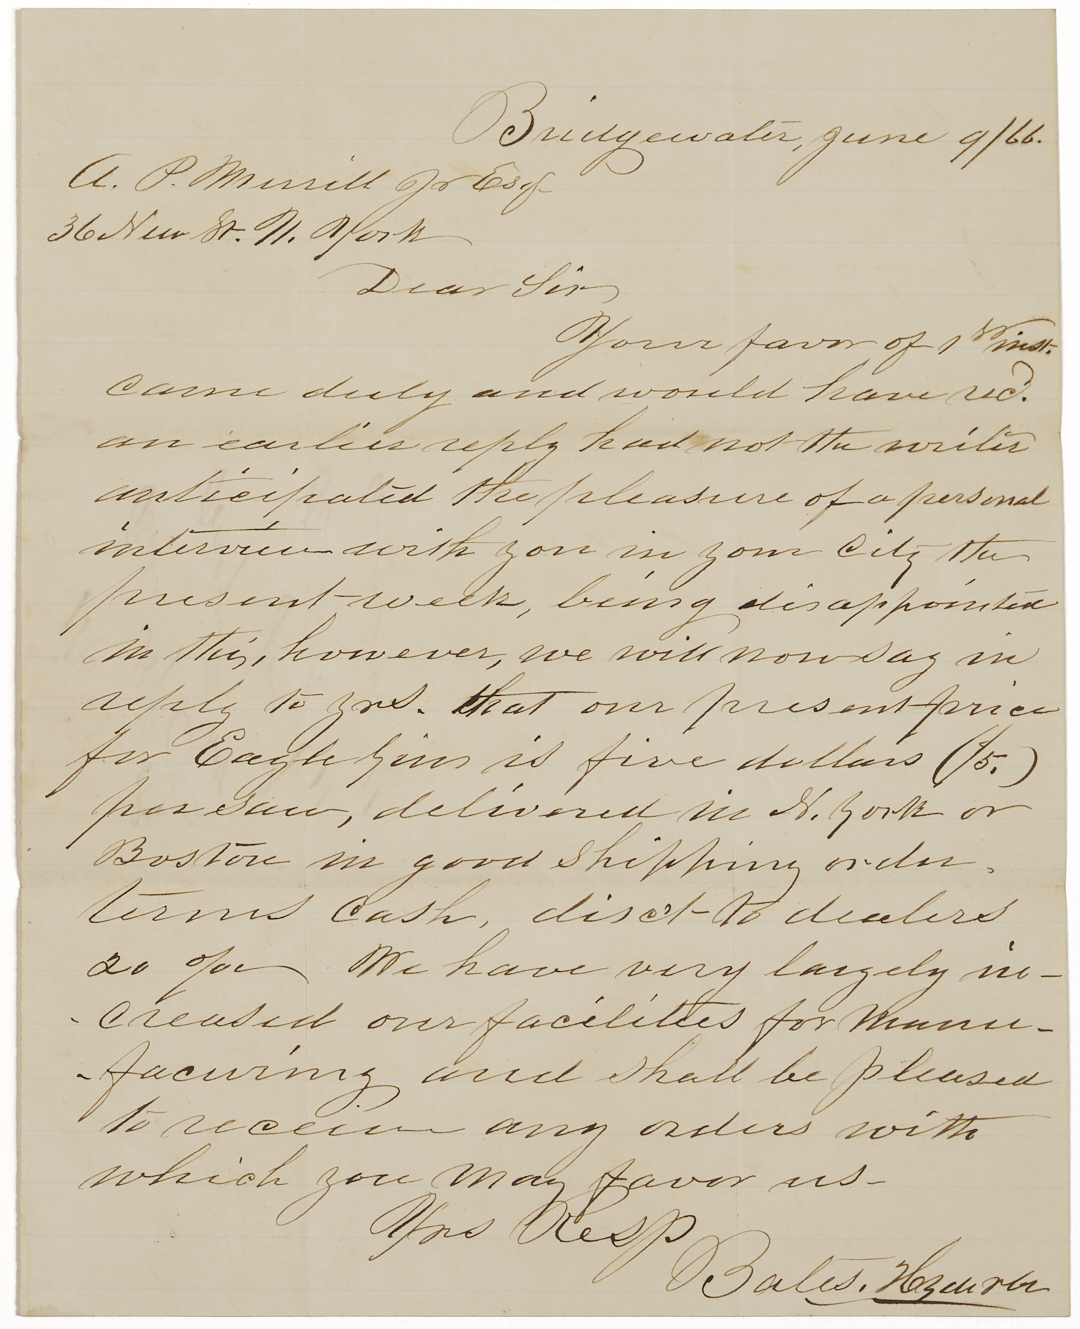 Bridgewater, June 9/66.
A. P. Merrill Jr Esq
36 New St. N. York
Dear Sir
Your favor of 1st inst.
came duly and would have recd.
an earlier reply had not the writer
anticipated the pleasure of a personal
interview with you in your City the
present week, being disappointed
in this, however, we will now say in
reply to yrs. that our present price
for Eagle Gins is five dollars ($5.)
per saw, delivered in N. York or
Boston in good shipping order.
terms cash, disct to dealers
20 pr We have very largely in-
-creased our facilities for manu-
-facuring and shall be pleased
to receive any orders with
which you may favor us-
Yrs Resp
Bates, Hyde &